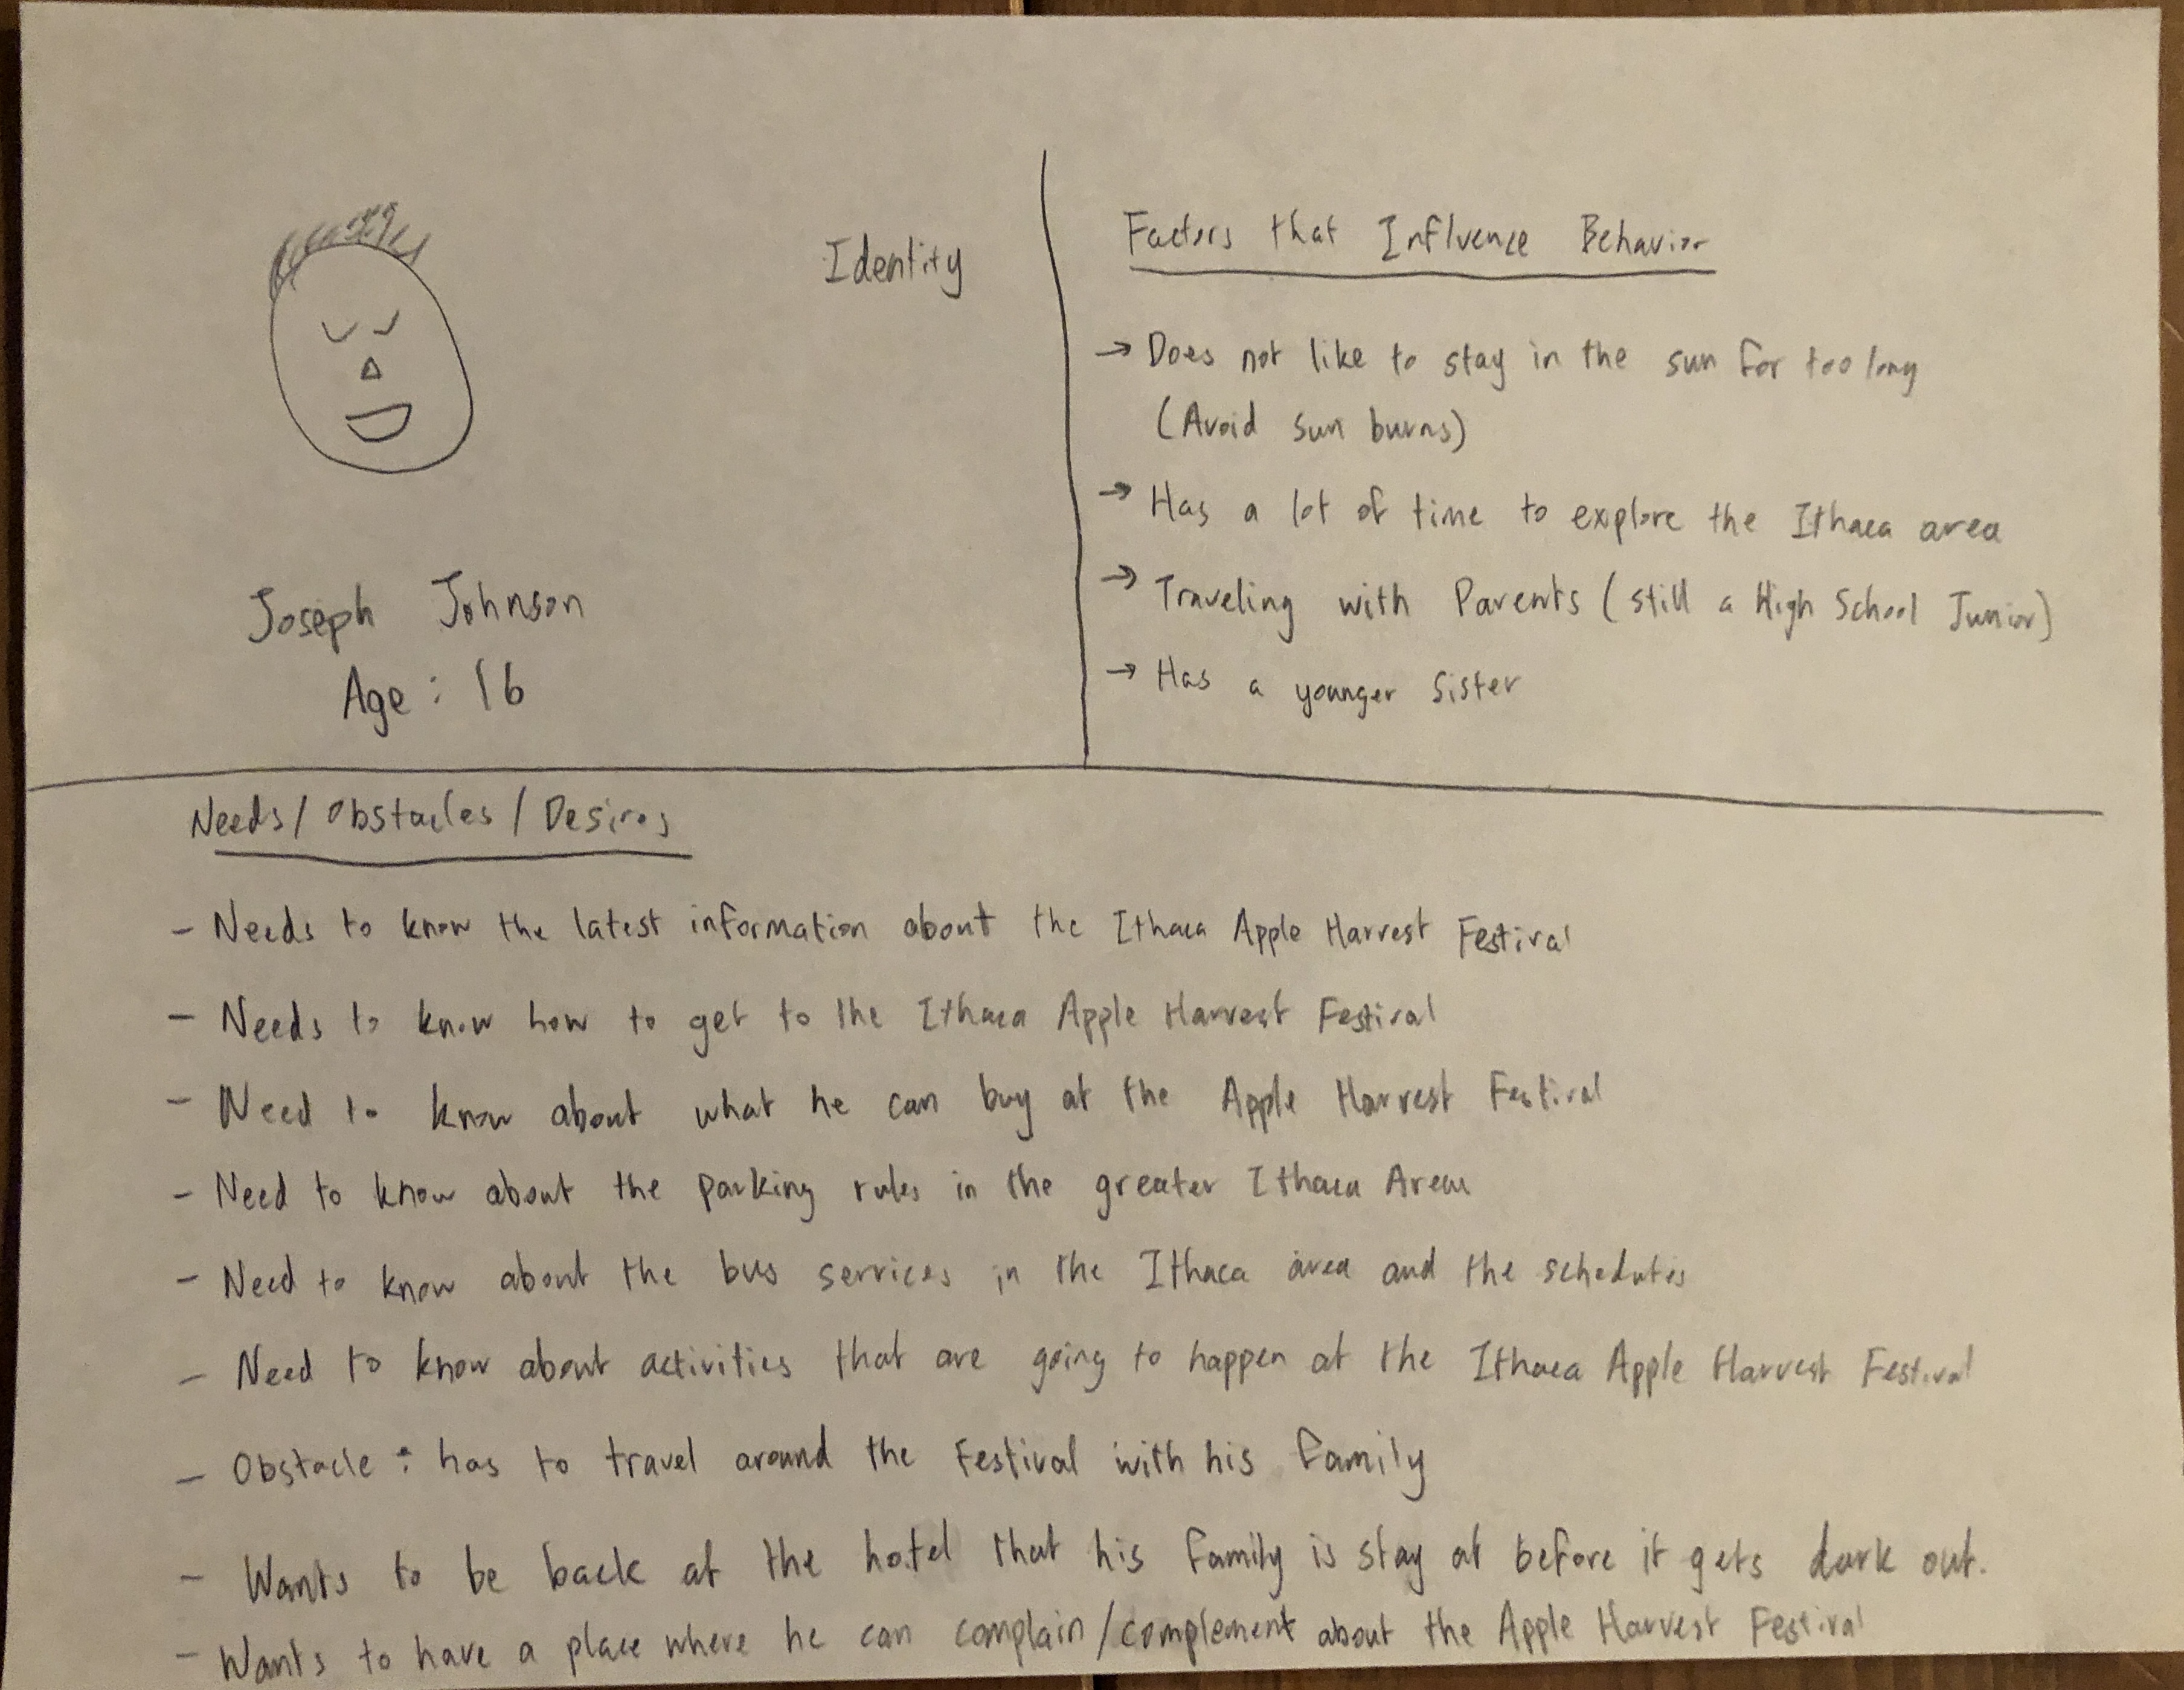 Identity
Joseph Johnson
Age : 16
Factors that Influence Behavior
→ Does not like to stay in the sun for too long
(Avoid sun burns)
→ Has a lot of time to explore the Ithaca area
→ Traveling with Parents (still a High School Junior)
→ Has a younger sister
Needs/Obstacles/Desires
- Needs to know the latest information about the Ithaca Apple Harvest Festival
- Needs to know how to get to the Ithaca Apple Harvest Festival
- Need to know about what he can buy at the Apple Harvest Festival
- Need to know about the parking rules in the greater Ithaca Area
- Need to know about the bus services in the Ithaca area and the schedules
- Need to know about activities that are going to happen at the Ithaca Apple Harvest Festival
- Obstacle : has to travel around the Festival with his family
- Wants to be back at the hotel that his family is stay at before it gets dark out.
- Wants to have a place where he can complain/complement about the Apple Harvest Festival